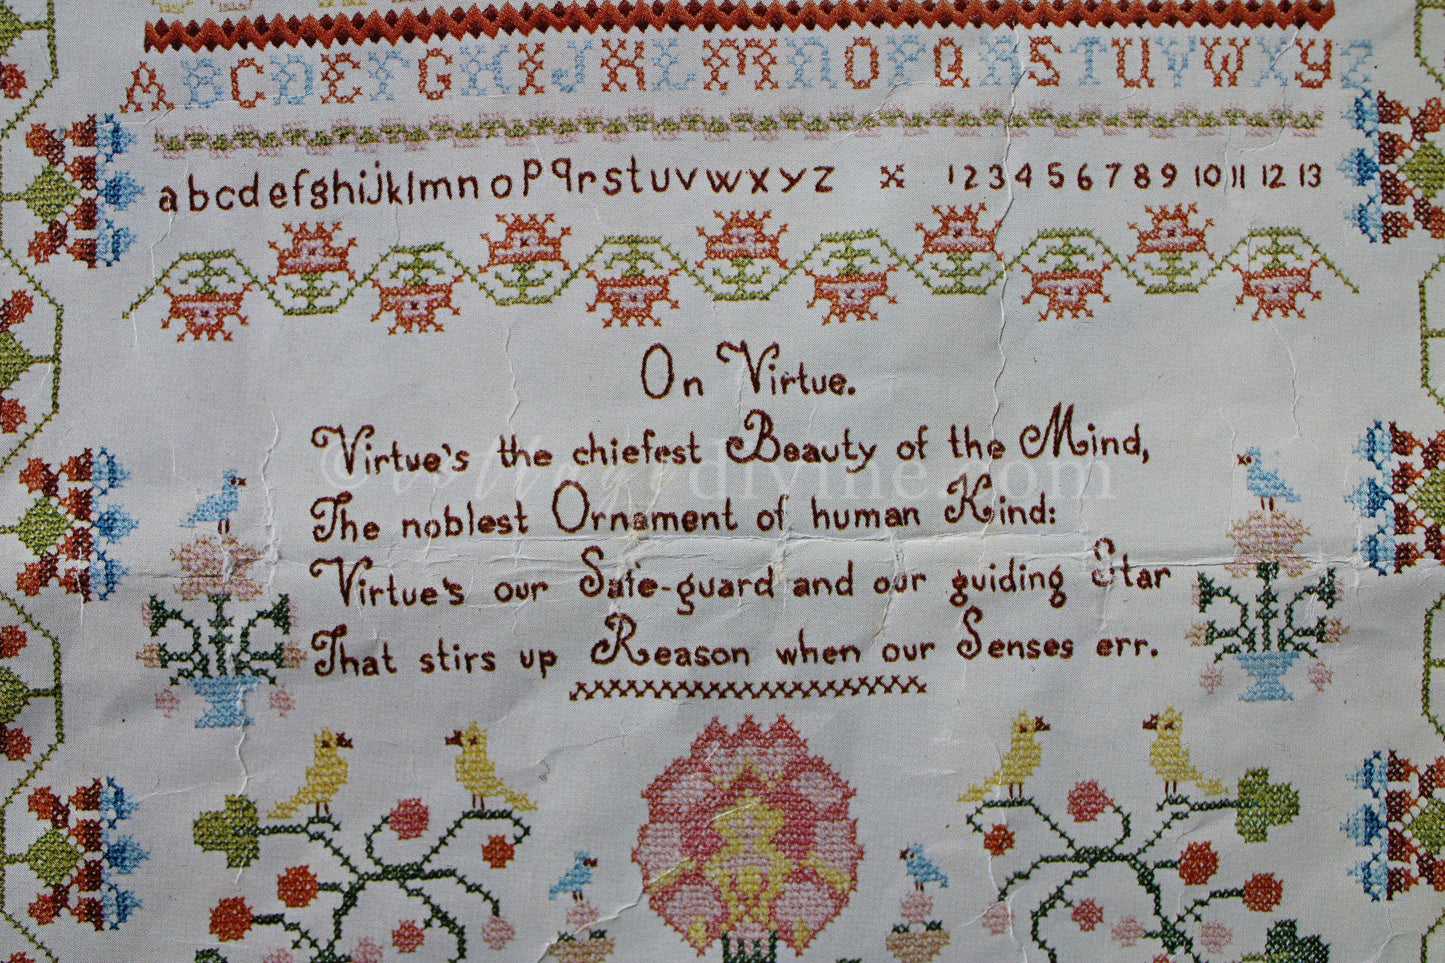 A B C D E F G H I J K L M N O P Q R S T U V W X Y Z
a b c d e f g h i j k l m n o p q r s t u v w x y z x 1 2 3 4 5 6 7 8 9 10 11 12 13
On Virtue.
Virtue's the chiefest Beauty of the Mind,
The noblest Ornament of human Kind:
Virtue's our Safe-guard and our guiding Star
That stirs up Reason when our Senses err.